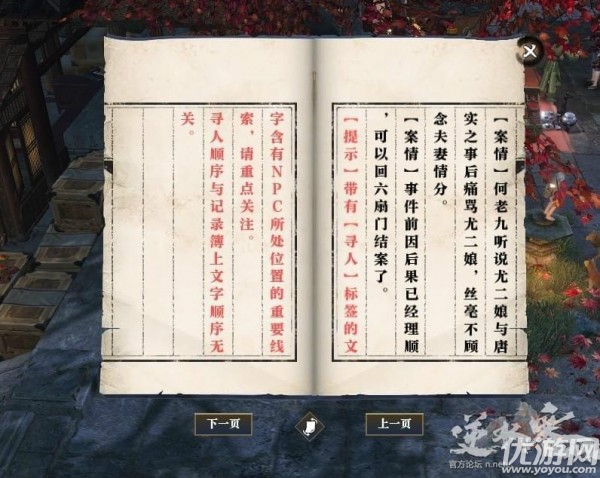 【案情】何老九听说尤二娘与唐
实之事后痛骂尤二娘，丝毫不顾
念夫妻情分。
【案情】事件前因后果已经理顺
，可以回六扇门结案了。
【提示】带有【寻人】标签的文
字含有NPC所处位置的重要线
索，请重点关注。
寻人顺序与记录簿上文字顺序无
关。
下一页
上一页
逆水寒
官方论坛 n.ne
优游网
www.yoyou.com